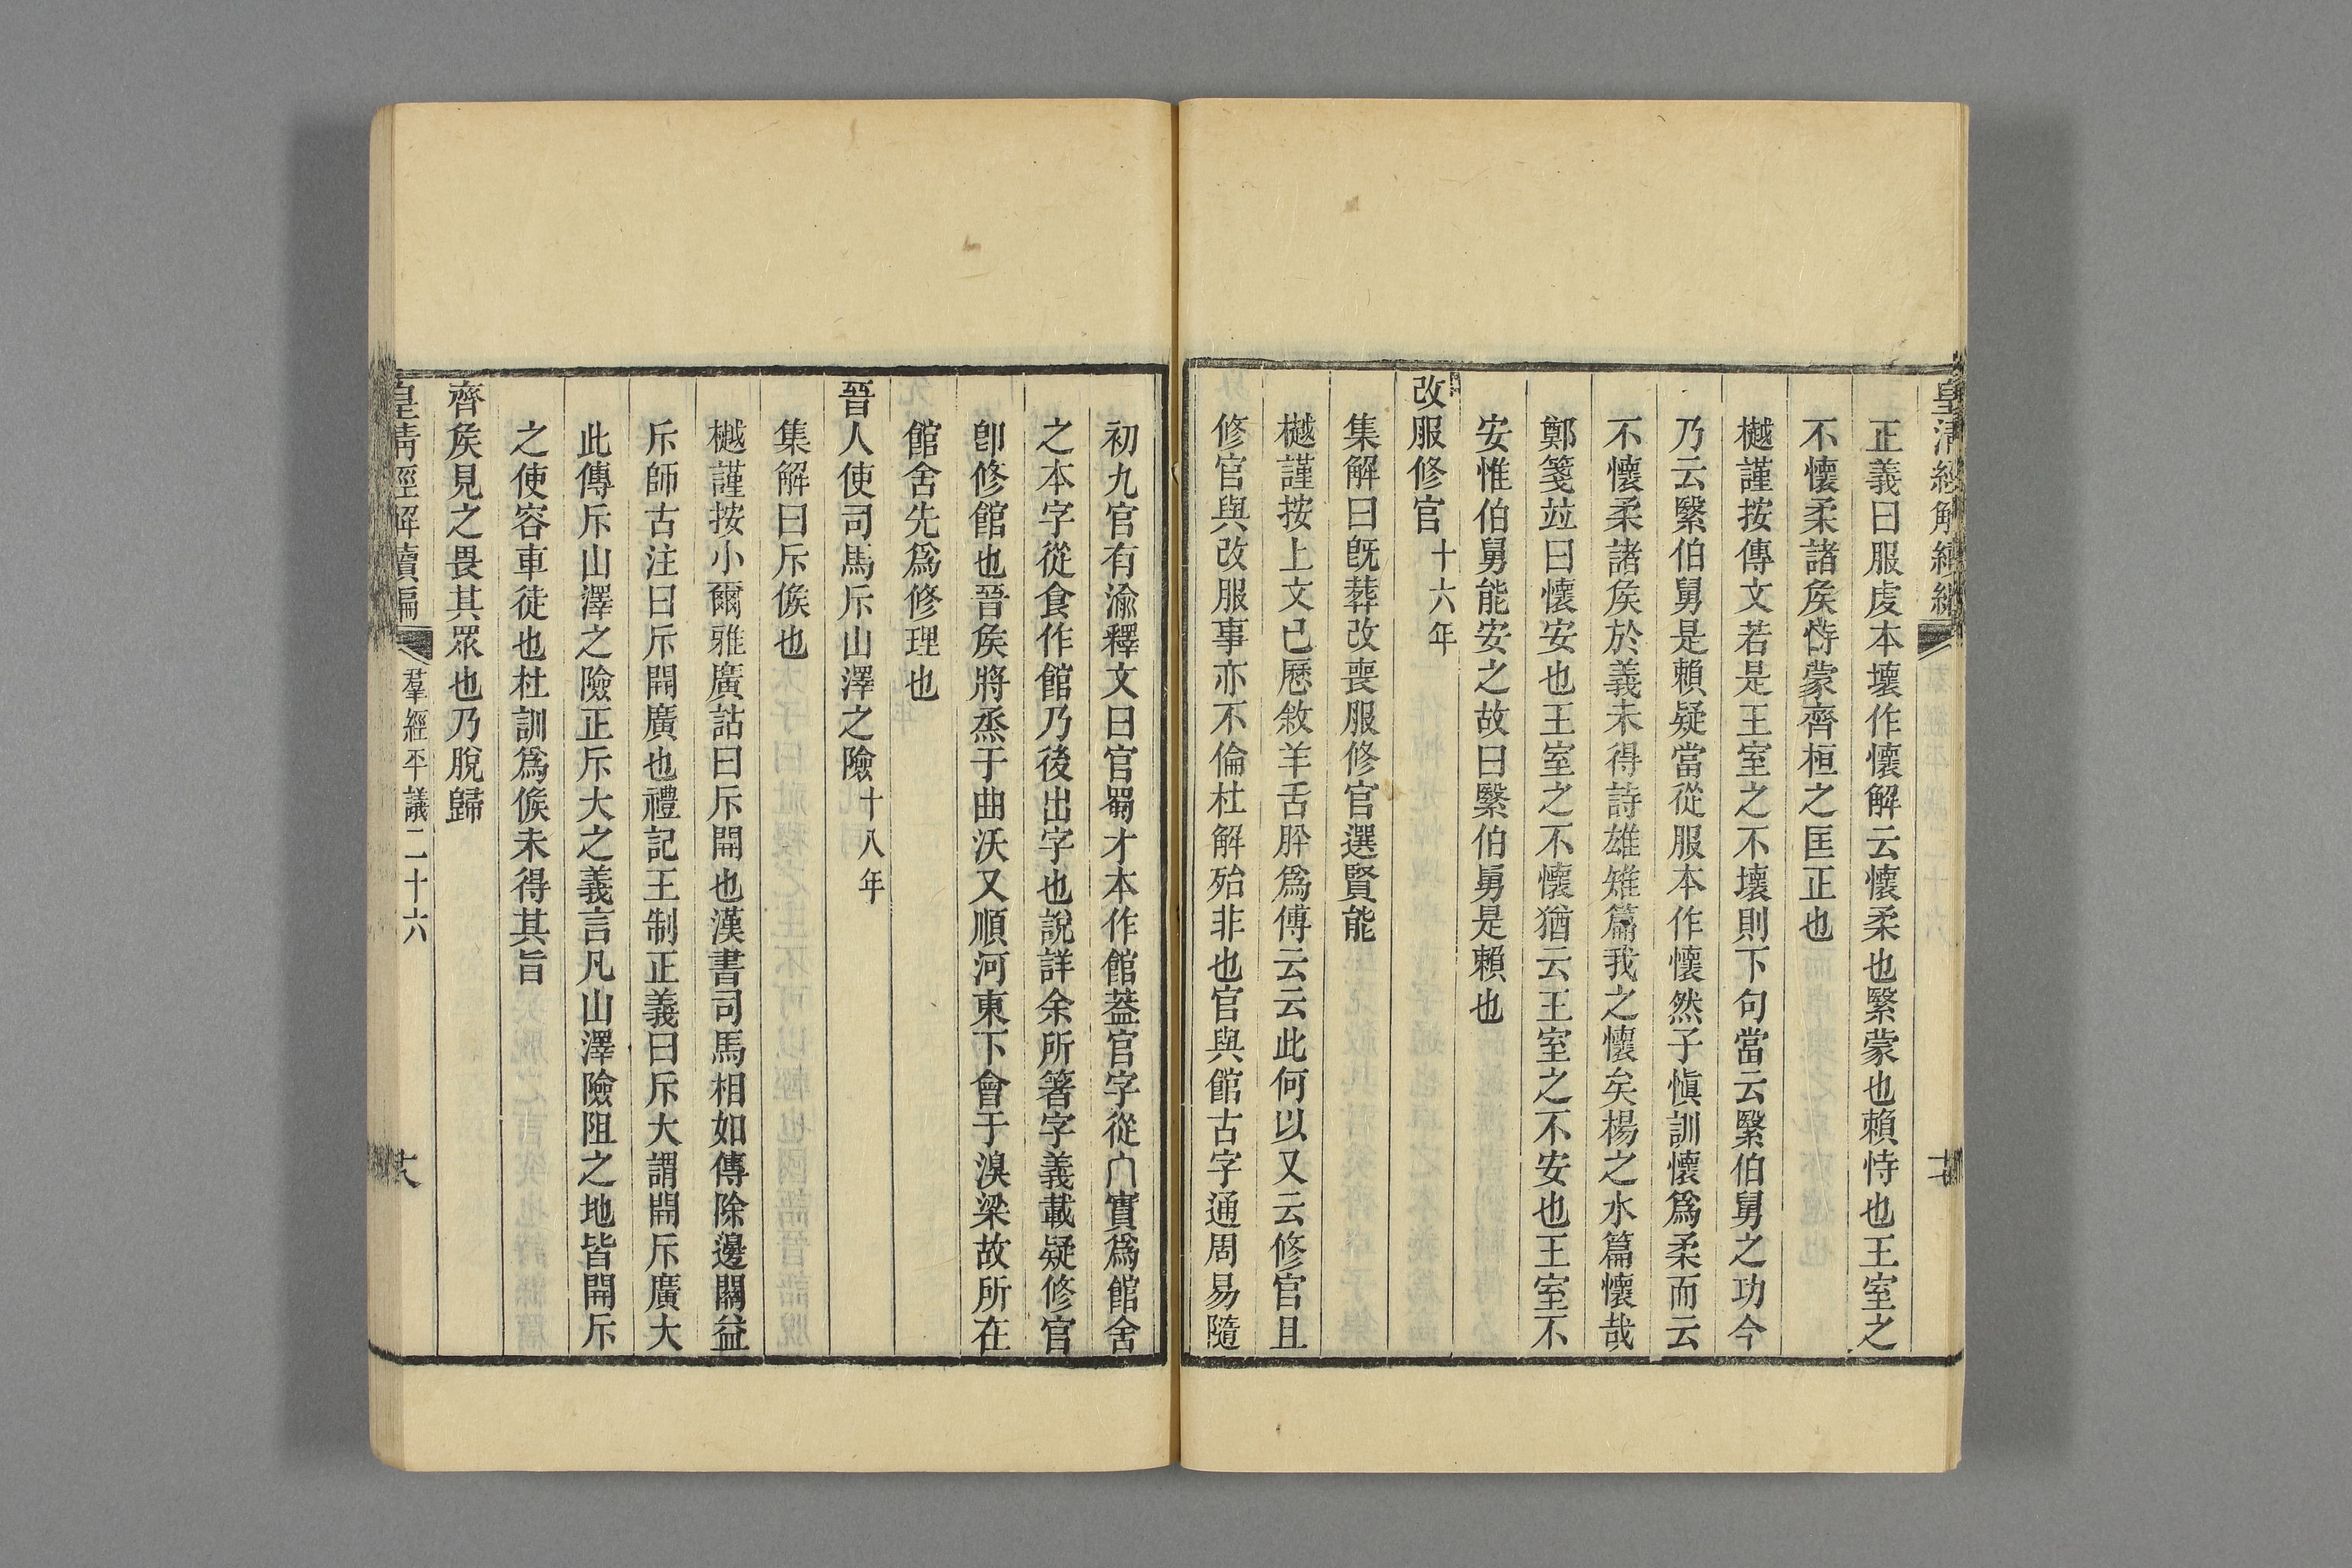 皇清經解續編
正義曰服虔本壞作懷解云懷柔也繄蒙也賴恃也王室之
不懷柔諸矦恃蒙齊桓之匡正也
樾謹按傳文若是王室之不壞則下句當云繄伯舅之功今
乃云繄伯舅是賴疑當從服本作懷然子愼訓懷爲柔而云
不懷柔諸矦於義未得詩雄雉篇我之懷矣楊之水篇懷哉
鄭箋竝曰懷安也王室之不懷猶云王室之不安也王室不
安惟伯舅能安之故曰繄伯舅是賴也
改服修官十六年
集解曰旣葬改喪服修官選賢能
樾謹按上文已歷敘羊舌肸爲傅云云此何以又云修官且
修官與改服事亦不倫杜解殆非也官與館古字通周易隨
初九官有渝釋文曰官蜀才本作館葢官字從宀實爲館舍
之本字從食作館乃後出字也說詳余所箸字義載疑修官
卽修館也晉矦將烝于曲沃又順河東下會于湨梁故所在
館舍先爲修理也
晉人使司馬斥山澤之險十八年
集解曰斥候也
樾謹按小爾雅廣詁曰斥開也漢書司馬相如傳除邊關益
斥師古注曰斥開廣也禮記王制正義曰斥大謂開斥廣大
此傳斥山澤之險正斥大之義言凡山澤險阻之地皆開斥
之使容車徒也杜訓爲候未得其旨
齊矦見之畏其眾也乃脫歸
皇清經解續編 羣經平議二十六